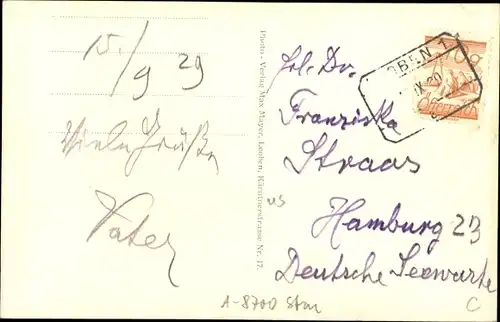 15./9 29
Viele Grüße
Vater
Photo-Verlag Max Mayer, Leoben, Kärntnerstrasse Nr. 17.
Franziska
Straas
Hamburg 23
Deutsche Seewarte
A-8700
C